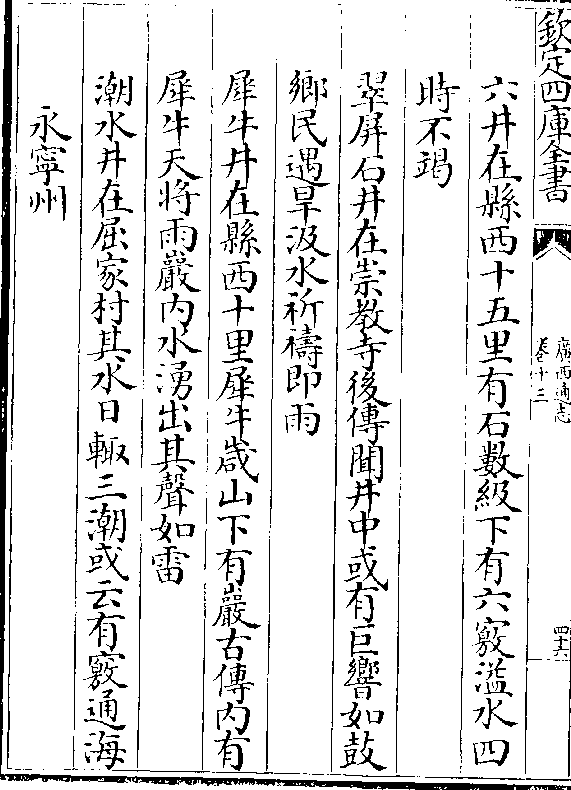 欽定四庫全書
廣西通志
卷十三
四十六
六井在縣西十五里有石數級下有六竅溢水四
時不竭
翠屏石井在崇教寺後傳聞井中或有巨響如鼓
鄉民遇旱汲水祈禱即雨
犀牛井在縣西十里犀牛嵗山下有巖古傳内有
犀牛天將雨巖内水湧出其聲如雷
潮水井在屈家村其水日輙三潮或云有竅通海
永寧州